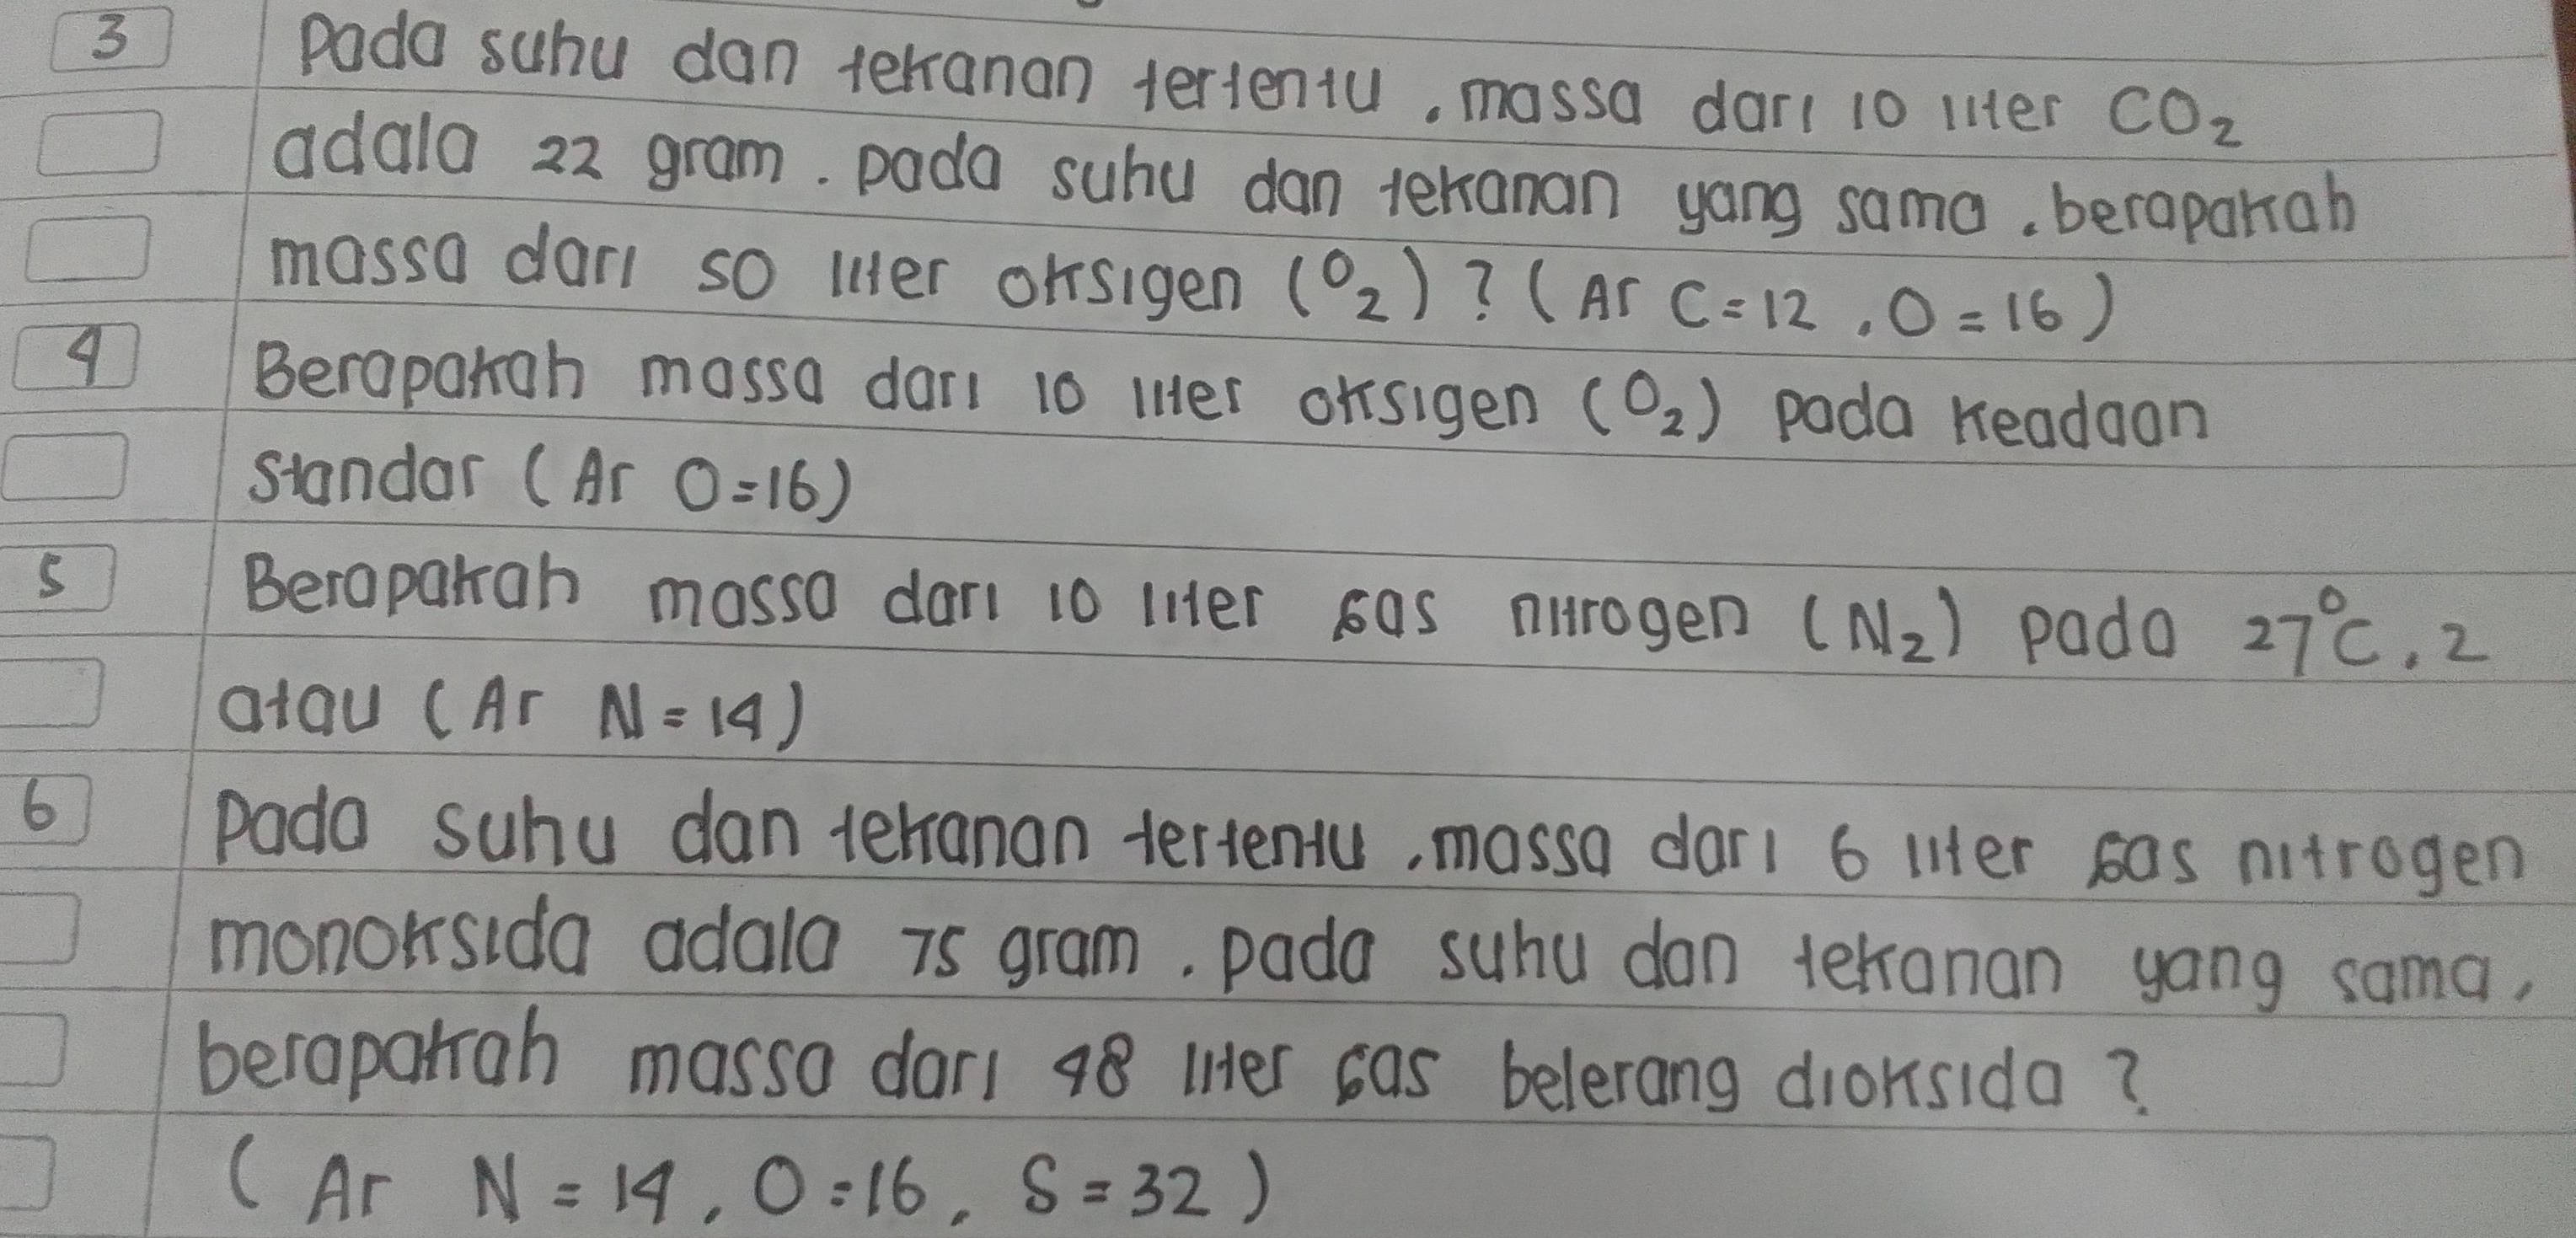 3 Pada suhu dan tekanan tertentu, massa dari 10 liter CO₂
adala 22 gram. pada suhu dan tekanan yang sama, berapakah
massa dari 50 liter oksigen (O₂)? (Ar C=12, O=16)
4 Berapakah massa dari 10 liter oksigen (O₂) pada keadaan
standar (Ar O=16)
5 Berapakah massa dari 10 liter gas nitrogen (N₂) pada 27°C, 2
atau (Ar N=14)
6 Pada suhu dan tekanan tertentu, massa dari 6 liter gas nitrogen
monoksida adala 75 gram. pada suhu dan tekanan yang sama,
berapakah massa dari 48 liter gas belerang dioksida?
(Ar N=14, O=16, S=32)